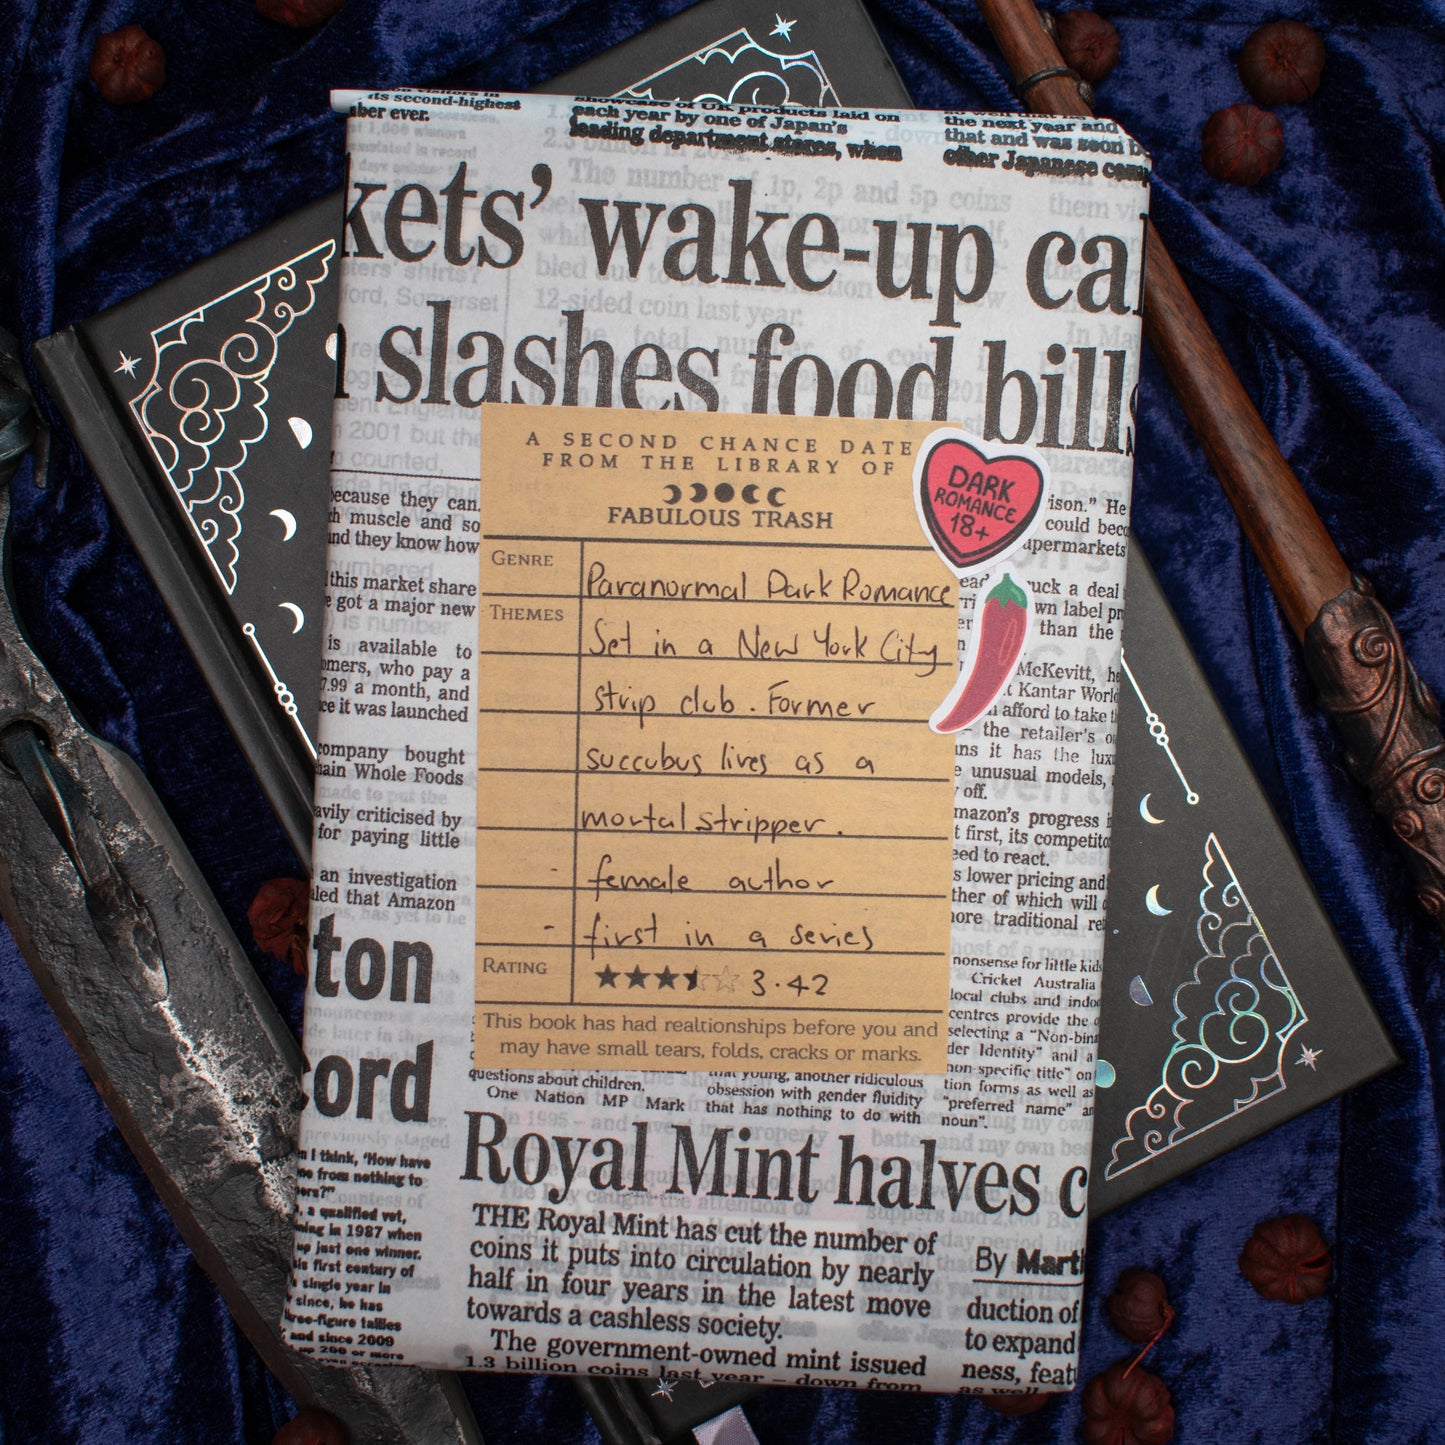 its second-highest
ber ever.
showcase of UK products laid on
each year by one of Japan's
leading department stores, when
the next year and
that and was soon b
other Japanese comp
kets' wake-up cal
slashes food bills
A SECOND CHANCE DATE
FROM THE LIBRARY OF
FABULOUS TRASH
DARK
ROMANCE
18+
GENRE
Paranormal Dark Romance
THEMES
Set in a New York City
strip club. Former
succubus lives as a
mortal stripper.
- female author
- first in a series
RATING
3.42
This book has had realtionships before you and
may have small tears, folds, cracks or marks.
ecause they can.
h muscle and so
nd they know how
this market share
got a major new
is available to
omers, who pay a
7.99 a month, and
ce it was launched
company bought
ain Whole Foods
avily criticised by
for paying little
an investigation
led that Amazon
ton
cord
ison." He
could beco
upermarkets'
uck a deal
wn label pr
than the
McKevitt, he
t Kantar World
afford to take
the retailer's o
ns it has the luxu
unusual models,
off.
mazon's progress
t first, its competito
eed to react.
s lower pricing and
ther of which will
ore traditional re
nonsense for little kids
Cricket Australia
local clubs and indoo
centres provide the
selecting a "Non-bina
der Identity" and a
non-specific title" on
tion forms as well as
"preferred name" an
noun".
questions about children.
One Nation MP Mark
that young, another ridiculous
obsession with gender fluidity
that has nothing to do with
Royal Mint halves c
THE Royal Mint has cut the number of
coins it puts into circulation by nearly
half in four years in the latest move
towards a cashless society.
The government-owned mint issued
1.3 billion coins last year – down from
By Mart
duction of
to expand
ness, feat
as well
I think, 'How have
me from nothing to
ers?"
, a qualified vet,
ning in 1987 when
up just one winner.
his first century of
single year in
since, he has
hree-figure tallies
and since 2009
up 200 or more